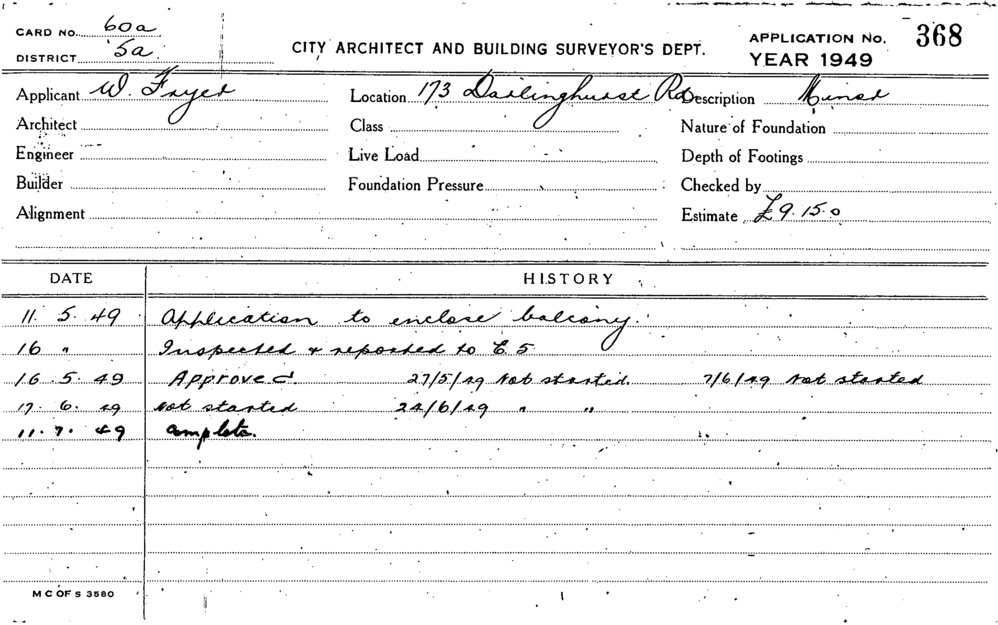 CARD No. 60a
DISTRICT 5a
CITY ARCHITECT AND BUILDING SURVEYOR'S DEPT.
APPLICATION No. 368
YEAR 1949
Applicant W. Fryer Location 173 Darlinghurst Rd Description Minor
Architect Class Nature of Foundation
Engineer Live Load Depth of Footings
Builder Foundation Pressure Checked by
Alignment Estimate £9.15.0
DATE HISTORY
11. 5. 49 Application to enclose balcony.
16 " Inspected & reported to E.5
16. 5. 49 Approved 27/5/49 Not started. 7/6/49 Not started
17. 6. 49 Not started 24/6/49 " "
11. 7. 49 Complete.
M C OF S 3580